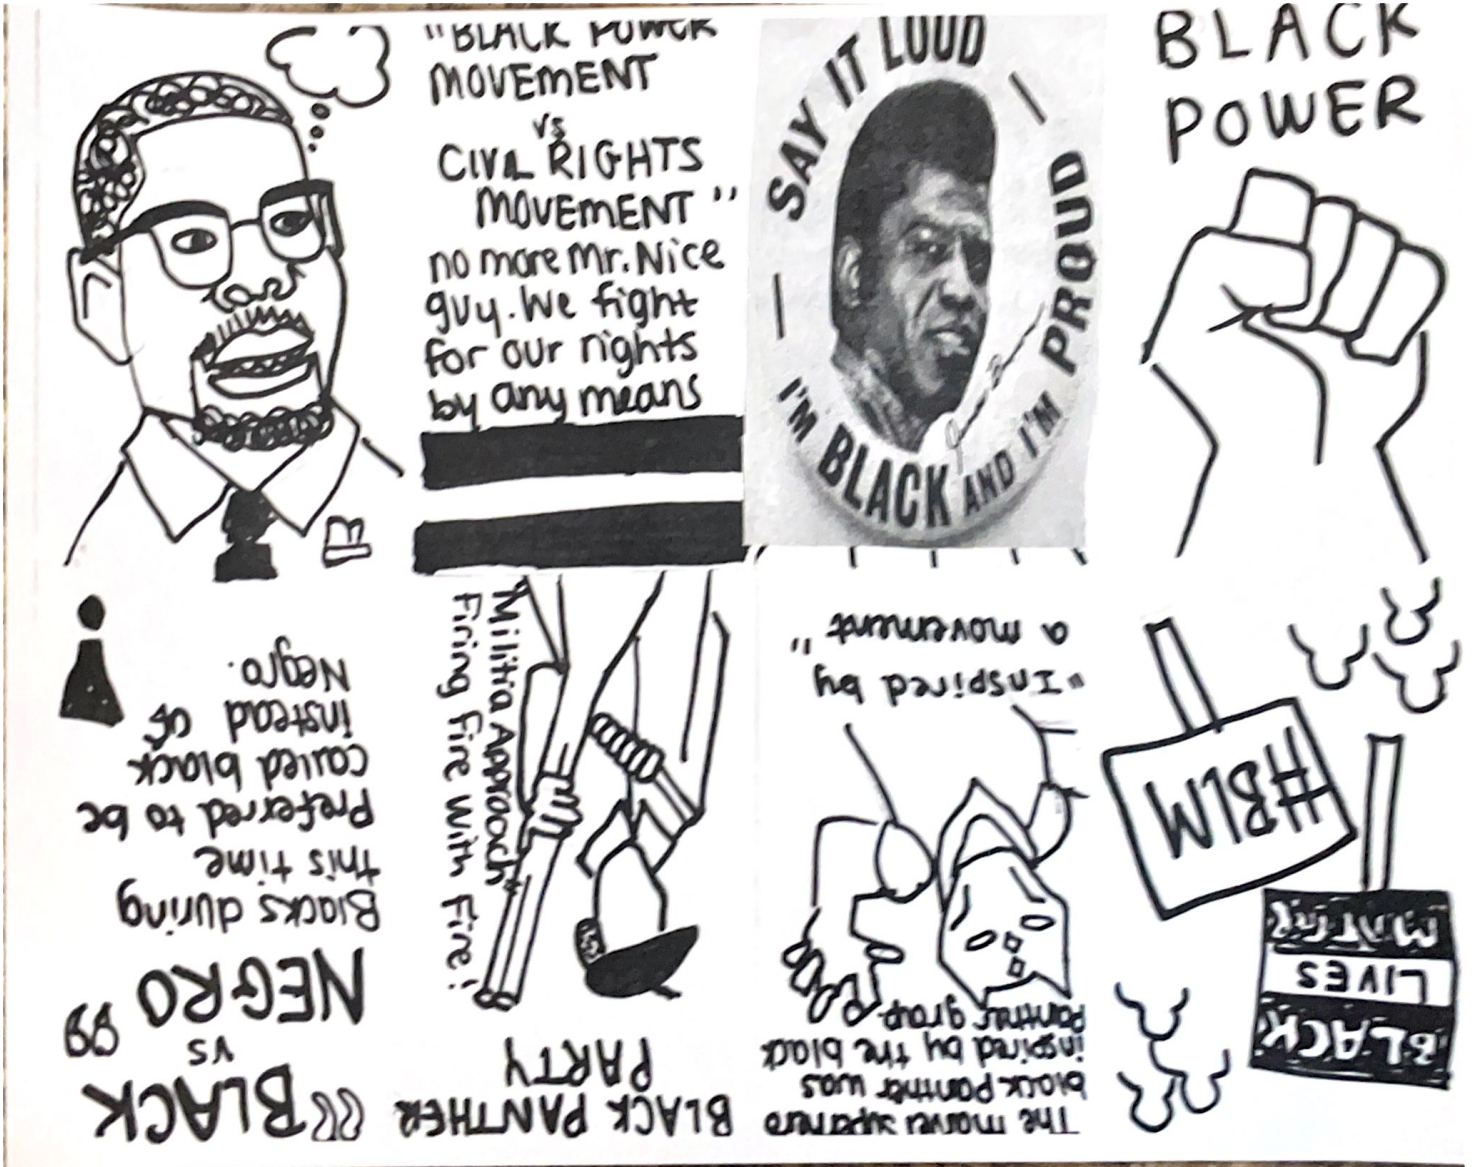 "BLACK POWER
MOVEMENT
vs
CIVIL RIGHTS
MOVEMENT"
no more Mr. Nice
guy. We fight
for our rights
by any means
SAY IT LOUD
I'M BLACK AND I'M PROUD
BLACK
POWER
"BLACK
vs
NEGRO"
Blacks during
this time
Preferred to be
called black
instead of
Negro.
BLACK PANTHER
PARTY
"Militia Approach"
Firing Fire With Fire!
The marvel superhero
black panther was
inspired by the black
panther group.
"Inspired by
a movement"
BLACK
LIVES
MATTER
#BLM